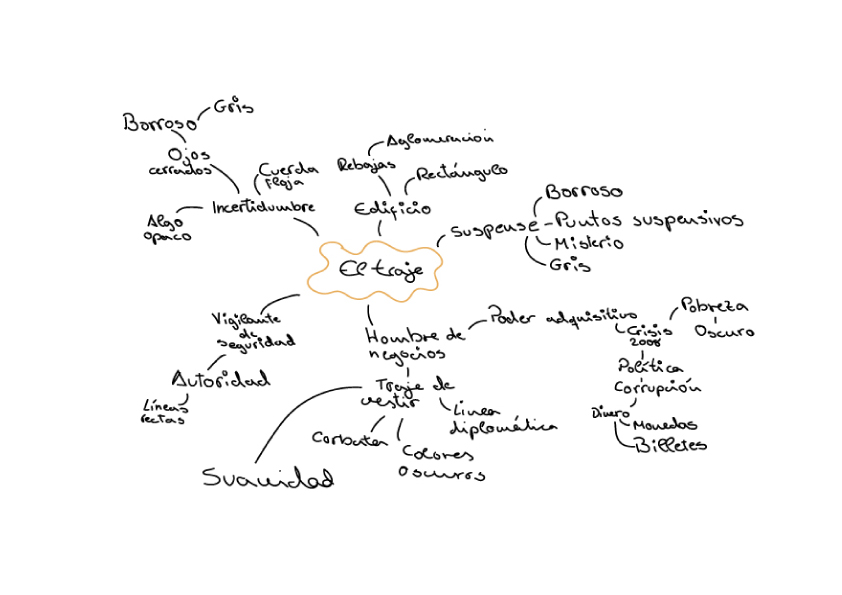 Gris
Borroso
Ojos
cerrados
Cuerda
Floja
Incertidumbre
Algo
opaco
Aglomeración
Rebajas
Rectángulo
Edificio
Suspense
Borroso
Puntos suspensivos
Misterio
Gris
El traje
Vigilante
de
seguridad
Autoridad
Líneas
rectas
Hombre de
negocios
Poder adquisitivo
Crisis
2008
Pobreza
Oscuro
Política
Corrupción
Dinero
Monedas
Billetes
Traje de
vestir
Linea
diplomática
Corbata
Colores
oscuros
Suavidad